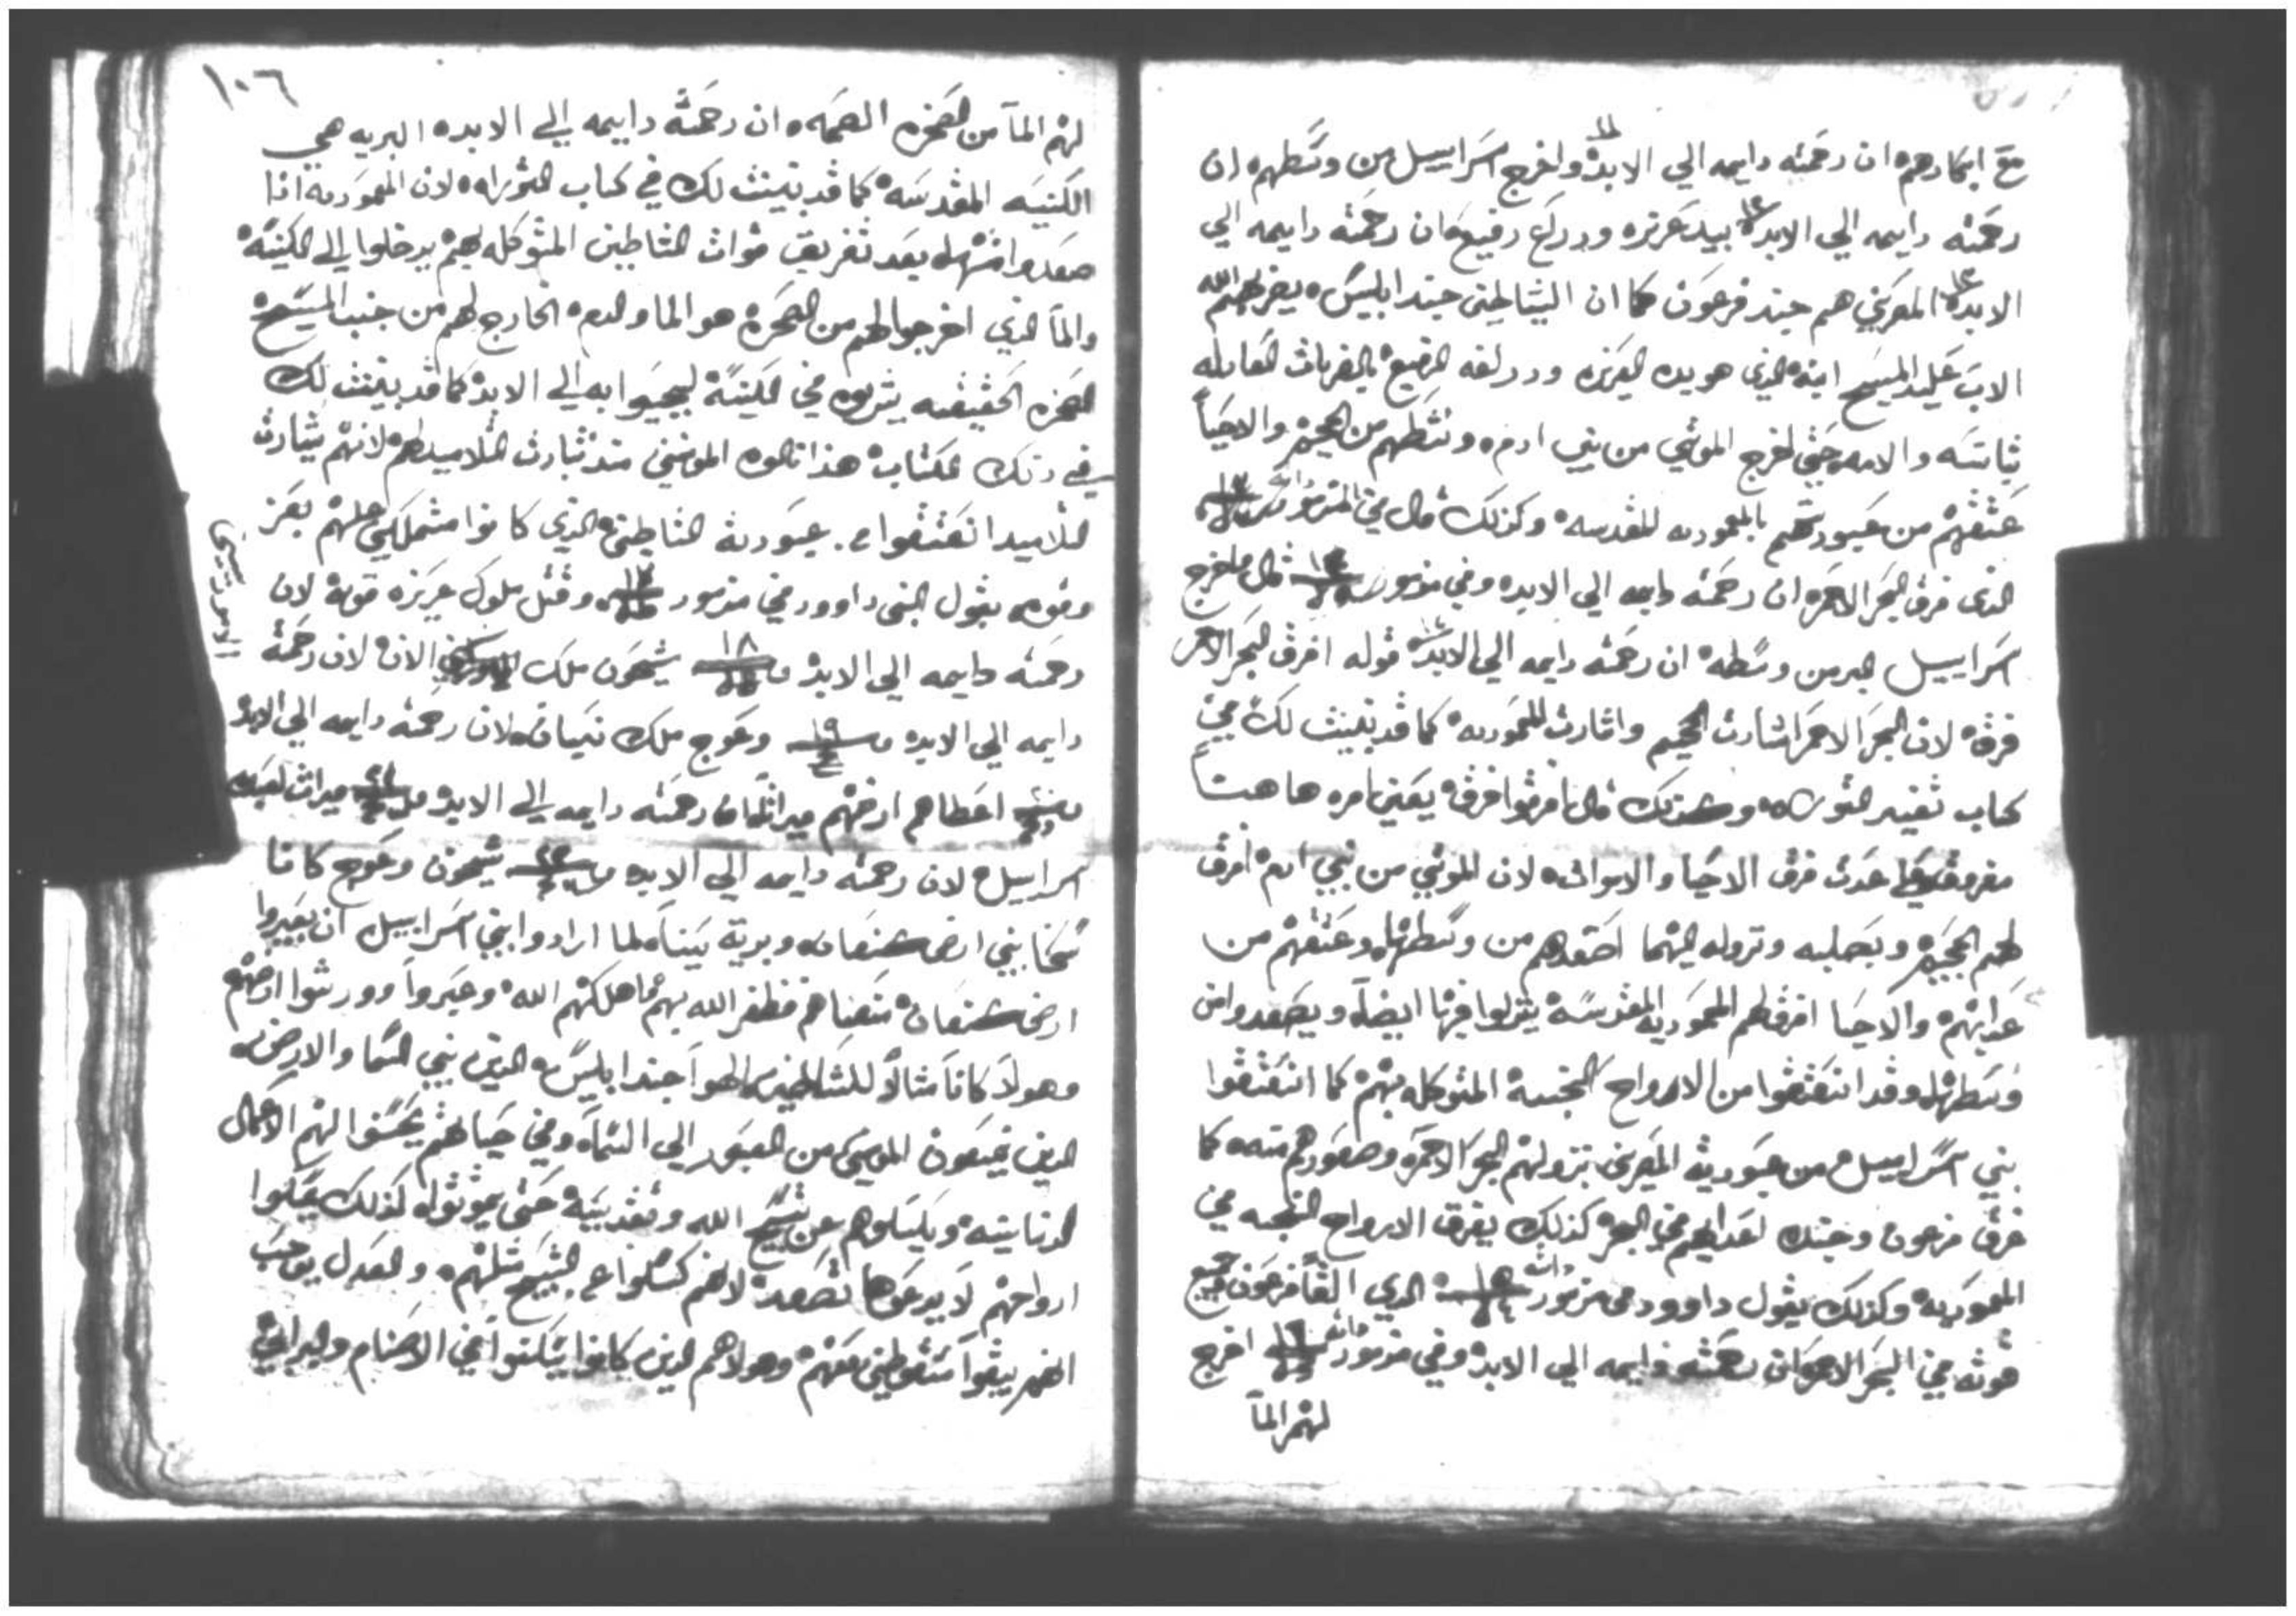 مع ابكارهم ان رحمته دايمه الي الابد واخرج اسراييل من وسطهم ان
رحمته دايمه الي الابد بيد عزيزه ودراع رفيع فان رحمته دايمه الي
الابد المصريين هم جند فرعون كما ان الشياطين جند ابليس يضربهم الله
الاب عليد المسيح ابنه الذي هو يده العزيزه ودراعه الرفيع بالضربات القاتله
والامه حتي اخرج الموتي من بني ادم من وسطهم من الجحيم والاحيا
عتقهم من عبوديتهم بالمعموديه المقدسه وكذلك قال في المزمور
الذي فرق البحر الاحمر ان رحمته دايمه الي الابد وفي مزمور قال فاخرج
اسراييل من وسطه ان رحمته دايمه الي الابد قوله افرق البحر الاحمر
فرقه لان البحر الاحمر اشارت الجحيم واشارت المعموديه كما قد تبينت لك في
كتاب تفسير التوراه وكذلك قال افرقوا فرق يعني امره هاهنا
فرق الاحيا والاموات لان الموتي من بني ادم افرق
لهم الجحيم وبصلبه ونزوله اليهما اصعدهم من وسطها وعتقهم من
عدابهم والاحيا افرق لهم المعموديه المقدسه ينزلوا فيها ايضا ويصعدوا من
وسطها وقد انعتقوا من الارواح النجسه المتوكله بهم كما انعتقوا
بني اسراييل من عبوديه المصريين بنزولهم البحر الاحمر وصعودهم منه كما
غرق فرعون وجنده اعدايهم في البحر كذلك يغرق الارواح النجسه في
المعموديه وكذلك يقول داوود في مزمور الدي القا فرعون جميع
قوته في البحر الاحمر ان رحمته دايمه الي الابد وفي مزمور اخرج
لهم المآ
١٠٦
لهم المآ من الصخره الصمه ان رحمته دايمه الي الابد البريه هي
الكنيسه المقدسه كما قد تبينت لك في كتاب التوراه لان المعموديه اذا
صعدوا منها بعد تغريق قوات الشياطين المتوكله بهم يدخلوا الي الكنيسه
والمآ الذي اخرجوا لهم من الصخره هو الما والدم الخارج لهم من جنب المسيح
الصخره الحقيقيه يشربوه في الكنيسه ليحيوا به الي الابد كما قد تبينت لك
في ذلك الكتاب هذا نالوه المومنين منذ بشارت التلاميد لهم لانهم بشارت
التلاميد انعتقوا من عبوديه الشياطين الذي كانوا متملكين عليهم بعز
وقوه يقول النبي داوود في مزمور وقتل ملوك عزيزه قويه لان
رحمته دايمه الي الابد ١٨ شيحون ملك الان لان رحمته
الاموريين
دايمه الي الابد ١٩ وعوج ملك نيسان لان رحمته دايمه الي الابد
اعطاهم ارضهم ميراثا فان رحمته دايمه الي الابد ميراث لعبده
اسراييل لان رحمته دايمه الي الابد شيحون وعوج كانا
بني ارض كنعان وبرية سينا لما ارادوا بني اسراييل ان يعبروا
ارض كنعان فظفر الله بهم فاهلكهم الله وعبروا وورثوا ارضهم
وهولا كانا مثالا للشياطين الهوا جند ابليس الدين بين السما والارض
الدين يمنعون المومنين من العبور الي السمآ وفي حياتهم يحسنوا لهم الاعمال
الدنايه ويكسلوهم عن تسبيح الله وتقديسه حتي يموتوا كذلك يمسكوا
ارواحهم لا يدعوها تصعد لانهم كسلوا عن التسبيح مثلهم والعدل يوجب
انهم يبقوا معهم وهولا هم الدين كانوا يسكنوا في الاصنام والبرابي